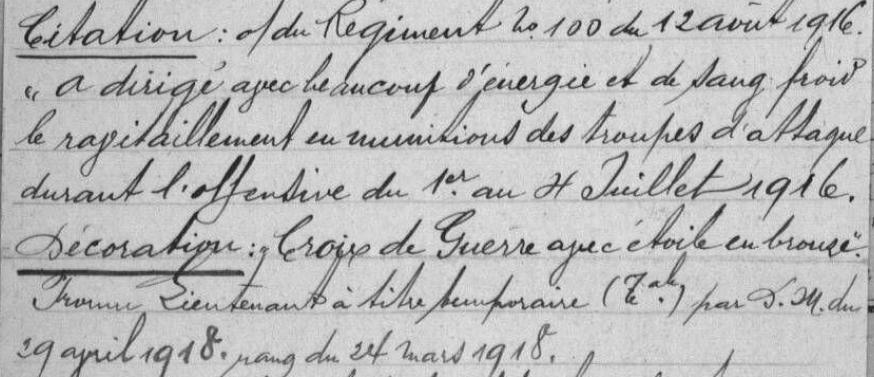 Citation : o/ du Régiment No 100 du 12 août 1916.
" a dirigé avec beaucoup d'énergie et de sang froid
le ravitaillement en munitions des troupes d'attaque
durant l'offensive du 1er au 4 Juillet 1916.
Décoration : Croix de Guerre avec étoile en bronze".
Promu Lieutenant à titre temporaire par D. M. du
29 avril 1918. rang du 24 mars 1918.